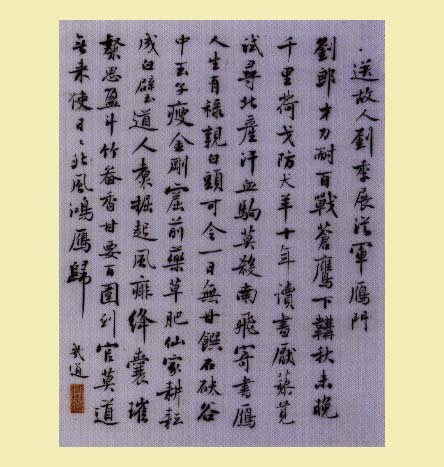 送故人劉季展從軍鴈門
劉郎才力耐百戰蒼鷹下韝秋未晚
千里荷戈防犬羊十年讀書厭藜莧
試尋北產汗血駒莫殺南飛寄書鴈
人生有祿親白頭可令一日無甘饌石砆谷
中玉子瘦金剛窟前藥草肥仙家耕耘
成白璧道人煮掘起風痱絳囊璀
璨思盈斗竹畚香甘要百圍到官莫道
無來使日日北風鴻鴈歸
武道